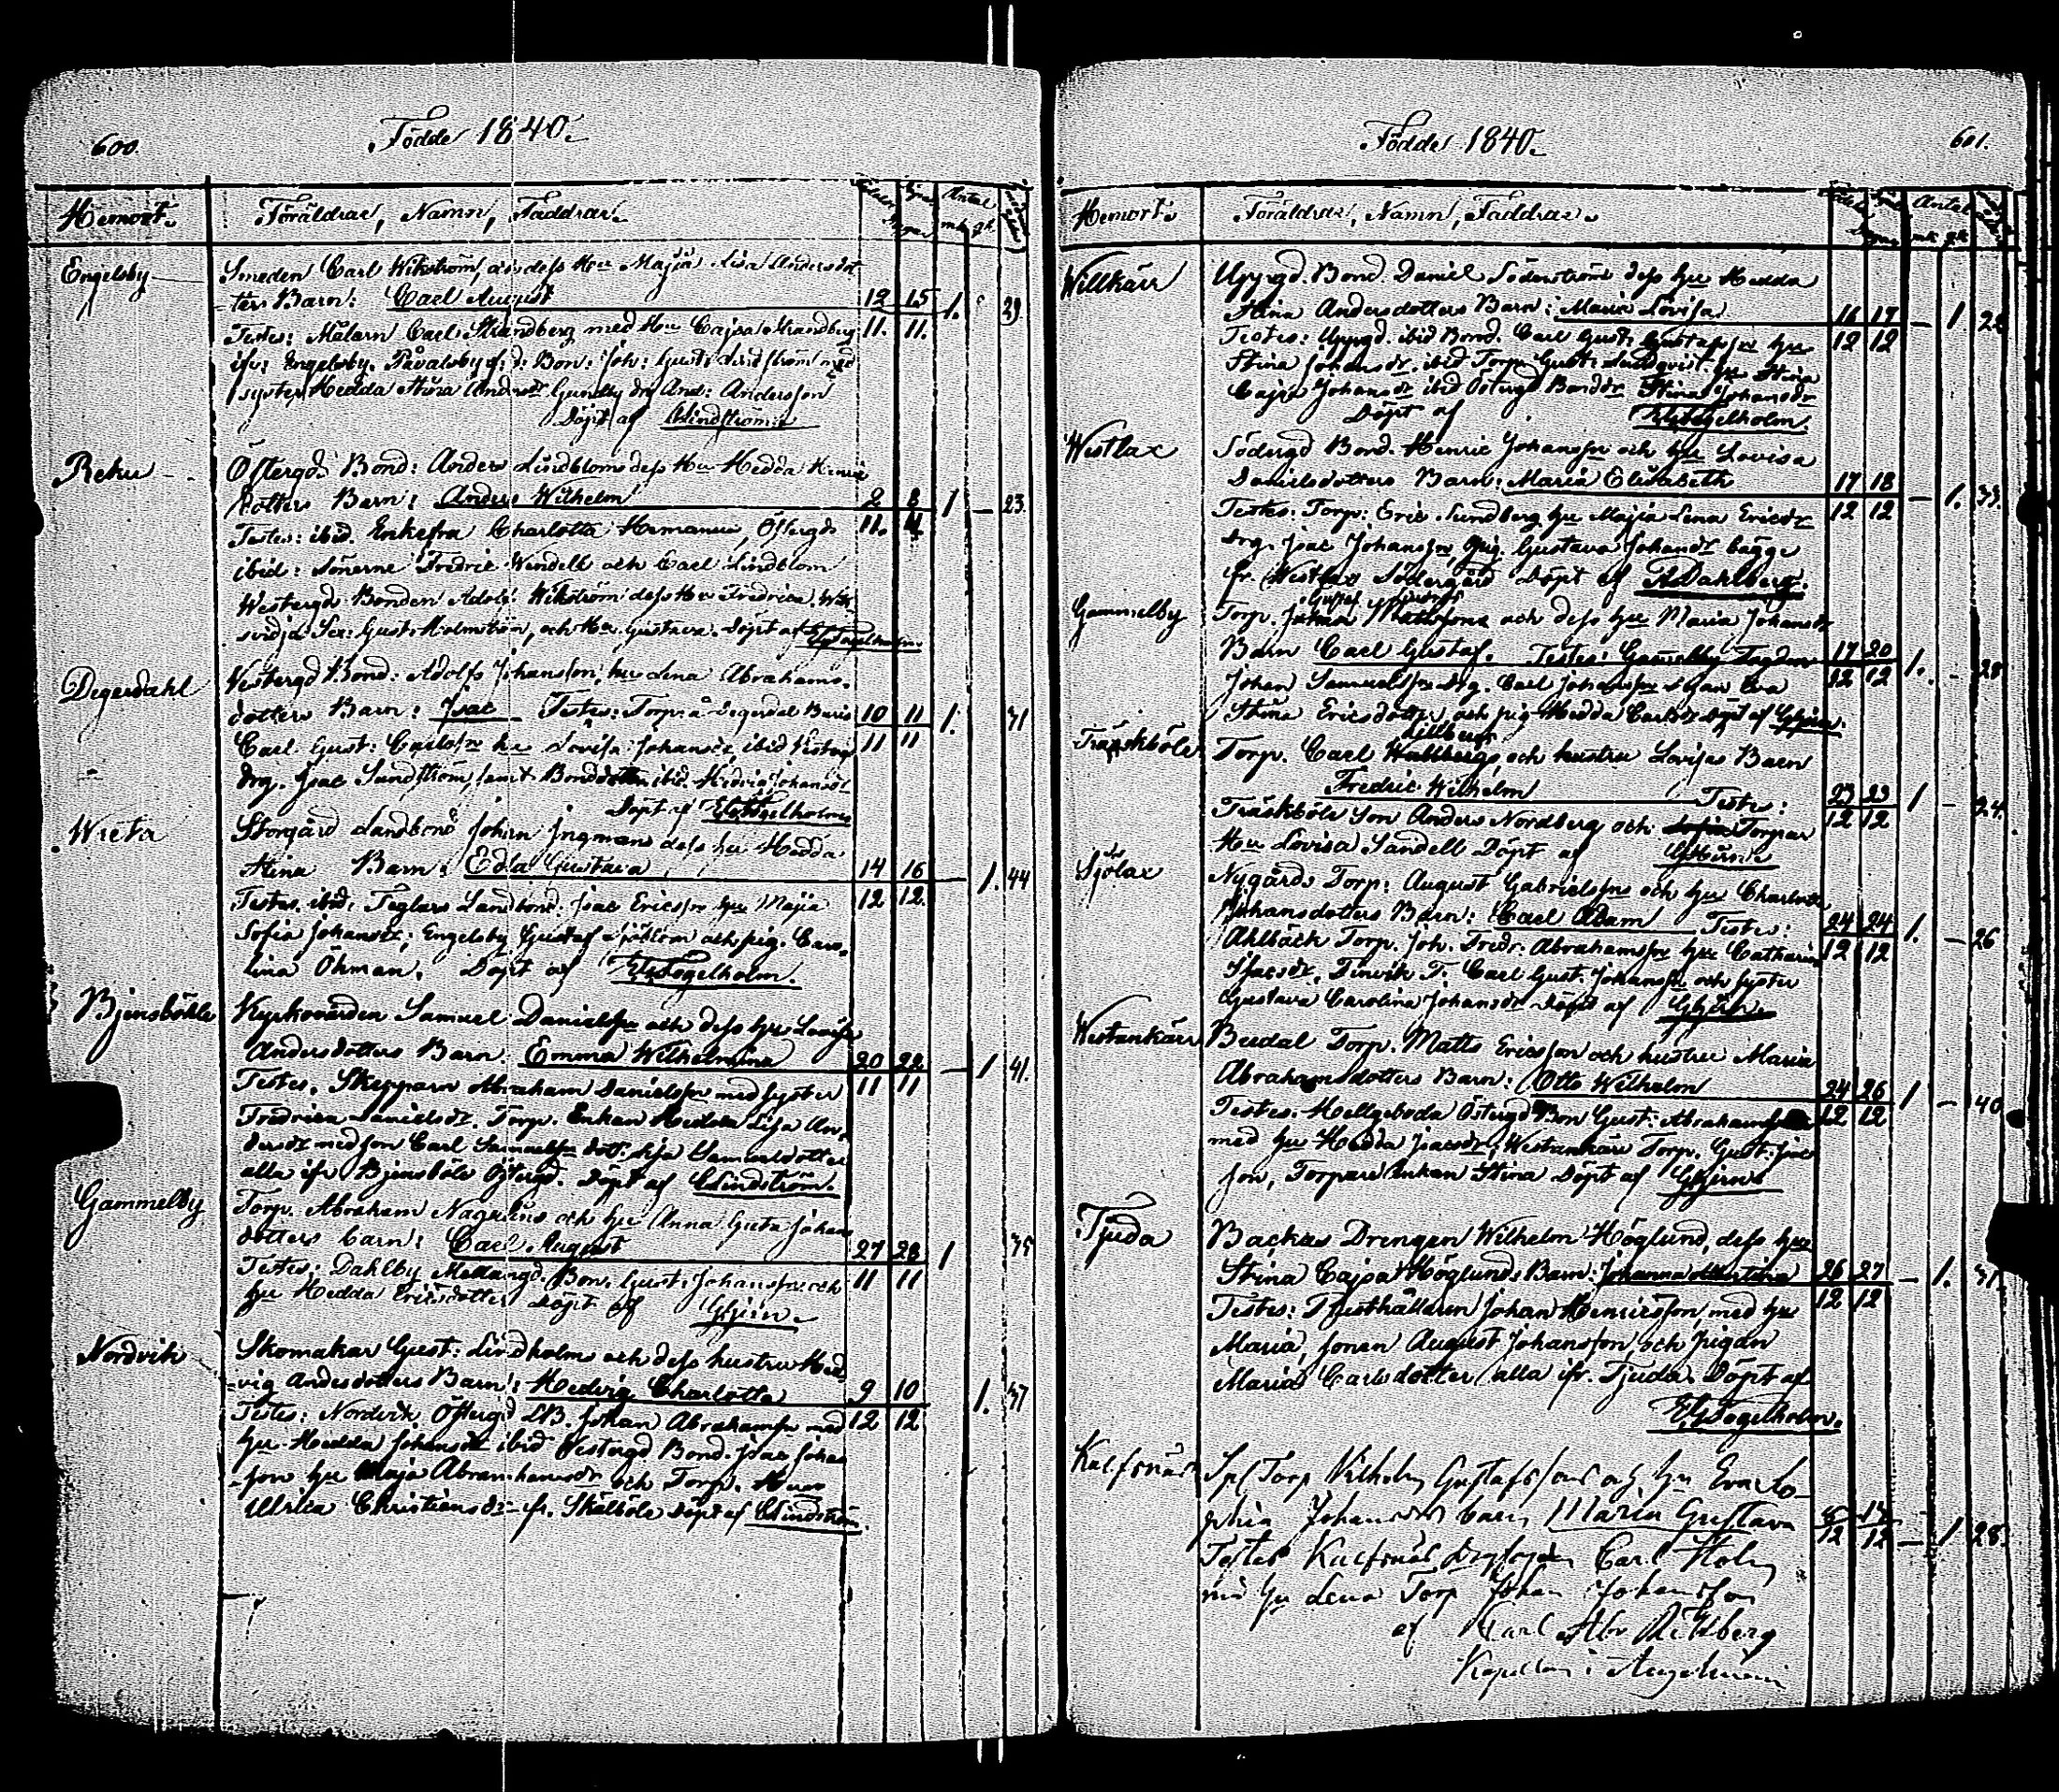 600.
Födde 1840.
Hemort. Föräldrar, Namn, Faddrar.
Engelsby Smeden Carl Wikström, dess Hu Maja Lisa Andersdot
ters Barn: Carl August 12 15 1. 29.
Testes: Målarn Carl Strandberg med Hu Cajsa Strandberg 11. 11.
ifr: Engelsby. Påvalsby Bon: Joh: Gust: Lindström med
syster Hedda Stina Andersdr Gundby drg And: Andersson
Döpt af CLindström
Reku Östergds Bond: Anders Lindbloms dess Hu Hedda Henric
dotters Barn: Anders Wilhelm 2 8 1 — 23.
Testes: ibid. Enkefru Charlotta Hemanus, Östergds 11. 11
ibid: Sönerne Fredric Wendell och Carl Lindblom
Westergds Bonden Adolf Wikström dess Hu Fredrica, Wik
svidja Gust: Holmström, och Hu Gustava. Döpt af EGFogelholm.
Degerdahl Vestergd Bond: Adolfs Johansson, hu Lena Abrahams.
dotters Barn: Isac Testes: Torp: å Degerdal 10 11 1. 31
Carl Gust: Carlssn hu Lovisa Johansdr, ibid 11 11
drg. Isac Sundström, samt Bonddottern ibid. Hedvig Johansdr
Döpt af EGFogelholm
Wreta Storgård Landbond Johan Ingmans dess hu Hedda
Stina Barn: Edla Gustava 14 16 — 1. 44
Testes. ibid. Teglars Landbond. Isac Ericssn hu Maja 12 12.
Sofia Johansdr; Engelsby Gustaf Sjöblom och pig. Caro
lina Öhman. Döpt af EGFogelholm.
Bjensböhle Kyrkovärden Samuel Danielssn och dess hu Lovisa
Andersdotters Barn: Emma Wilhelmina 20 22 — 1 41.
Testes. Skepparn Abraham Danielssn med syster 11 11
Fredrica Danielsdr. Torp. Enkan Hedda Lisa An,
dersdr med son Carl Samuelssn dott. Lisa Samuelsdotter
alla ifr Bjensböle Östergd. Döpt af CLindström.
Gammelby Torp. Abraham Nagulins och hu Anna Greta Johans
dotters barn: Carl August 27 28 1 35
Testes: Dahlby Mellangd. Bon. Gust: Johanssn och 11 11
hu Hedda Ericsdotter Döpt af GHjrn.
Nordvik Skomakar Gust: Lindholms och dess hustru Hed
vig Andersdotters Barn: Hedvig Charlotta 9 10 1. 37
Testes: Nordvik Östergd LB. Johan Abrahamssn med 12 12
hu Hedda Johansdr ibid Vestergd Bond. Isac Johans
son hu Maja Abramhamsdr och Torp. Hu
Ulrica Christiansdr fr. Skälböle Döpt af CLindström.
601.
Födde 1840.
Hemort. Föräldrar, Namn, Faddrar.
Willkärr Uppgd. Bond. Daniel Söderström dess hu Hedda
Stina Andersdotters Barn: Maria Lovisa 16 17 — 1 28
Testes: Uppgd. ibid Bond. Carl Gust: Gustafssn hu 12 12
Stina Johansdr. ibid Torp. Gust: Lindqvist hu Stina
Cajsa Johansdr ibid Östergd Bonddr Stina Johansdr
Döpt af EGFogelholm.
Westlax Södergd Bond. Henric Johanssn och hu Lovisa
Danielsdotters Barn: Maria Elisabeth 17 18 — 1. 33.
Testes. Torp: Eric Sundberg hu Maja Lena Ericsdr 12 12
drg. Isac Johanssn, pig. Gustava Johansdr bägge
fr. Westlax Södergård Döpt af ADahlberg.
Gammelby Torp. Johan Mattssons och dess hu Maria Johansdr
Barn Carl Gustaf. Testes: Gamelby 17 20 1. — 28
Johan Samuelssn drg. Carl Johanssn Eva 12 12
Stina Ericsdotter och pig Hedda Carlsdr Döpt af GHjrn.
Lillbergs
Träskböle Torp. Carl Wahlbergs och hustru Lovisas Barn
Fredric Wilhelm Testes: 23 23 1 — 24.
Träskböle Son Anders Nordberg och Sofia Torpar 12 12
Hu Lovisa Sandell Döpt af GHjrn
Sjölax Nygårds Torp: August Gabrielssns och hu Charlotta
Johansdotters Barn: Carl Adam Testes: 24 24 1. — 26
Ahlbäck Torp. Joh. Fredr: Abrahamssn hu Catharina 12 12
Isacsdr. Finvik T. Carl Gust. Johanssn och syster
Gustava Carolina Johansdr Döpt af GHjrn.
Westankärr Bredal Torp. Matts Ericsson och hustru Maria
Abrahamsdotters Barn: Otto Wilhelm 24 26 1 — 40
Testes. Hellgeboda Östergd Bon Gust: Abrahamssn 12 12
med hu Hedda Isacsdr; Westankärr Torp. Gust. Isac
son, Torpare Enkan Stina Döpt af GHjrn
Tjuda Backas Drengen Wilhelm Höglund, dess hu
Stina Cajsa Höglunds Barn: Johanna 26 27 — 1. 31.
Testes: Rusthållarn Johan Henricsson, med hu 12 12
Maria, sonen August Johansson, och Pigan
Maria Carlsdotter alla ifr. Tjuda. Döpt af
EGFogelholm.
Kalfsnäs Torp Vilhelm Gustafssons och hu Eva So
phia Johansdrs barn Maria Gustava 8 13
Testes Kalfsnäs Carl Holm 12 12 — 1 28.
med hu Lena Torp Johan Johansson
af Carl Abr
Kapellan i